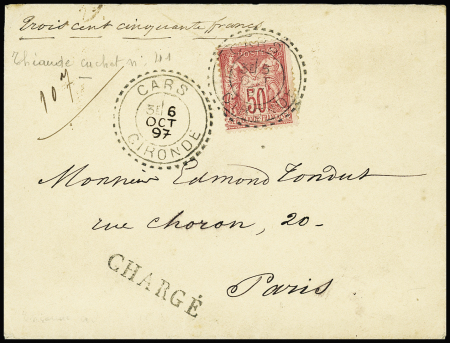 Trois cent cinquante francs
cachet n° 41
107
CARS
3E 6
OCT
97
GIRONDE
50
Monsieur Edmond Tondut
rue Choron, 20-
Paris.
CHARGÉ